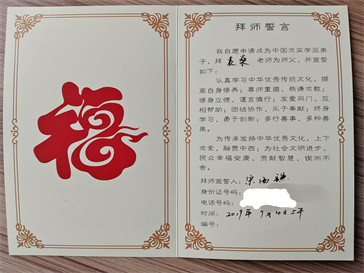 福
拜师誓言
我自愿申请成为中国求实学派弟
子，拜 老师为师父，并宣誓
如下：
认真学习中华优秀传统文化，提
高自身修养；尊师重道，恭谦求教；
修身立德，谨言慎行；友爱同门，互
相帮助；团结协作，乐于奉献；终身
学习，勇于创新；多行善事，多种善
果。
为传承发扬中华优秀文化，上下
求索，融贯中西；为社会文明进步，
民众幸福安康，贡献智慧，锲而不
舍。
拜师宣誓人：
身份证号码：
电话号码：
时间：2019年9月4日
编号：